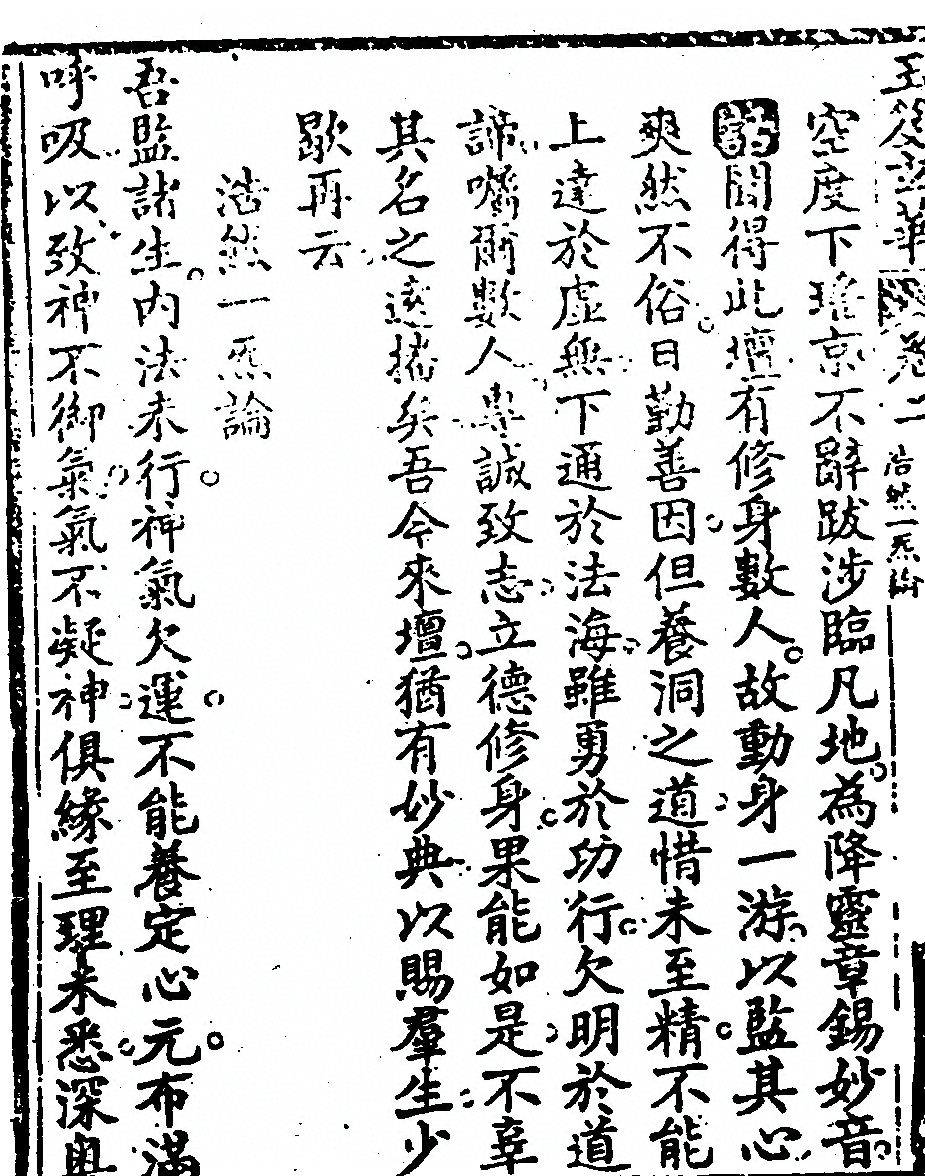 玉 華 卷二 浩然一炁論
空度下瓊京不辭跋涉臨凡地為降靈章錫妙音
聞得此壇有修身數人故動身一游以監其心
爽然不俗日勤善因但養洞之道惜未至精不能
上達於虛無下通於法海雖勇於功行欠明於道
諦囑爾數人專誠致志立德修身果能如是不辜
其名之遠播矣吾今來壇猶有妙典以賜羣生少
歇再云
浩然一炁論
吾監諸生內法未行神氣欠運不能養定心元布滿
呼吸以致神不御氣氣不凝神俱緣至理未悉深奧